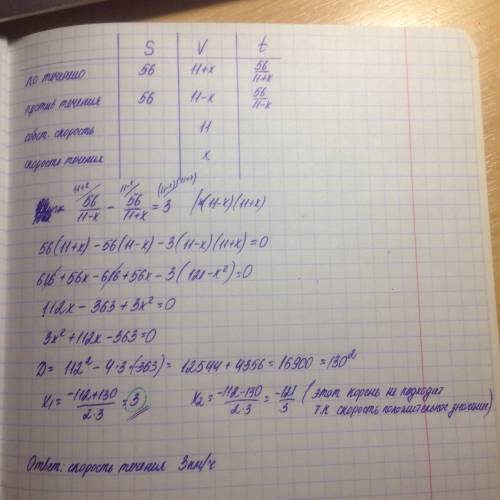 S V t
по течению 56 11+x 56/(11+x)
против течения 56 11-x 56/(11-x)
собст. скорость 11
скорость течения x
56/(11-x) - 56/(11+x) = 3 |·(11-x)(11+x)
56(11+x)-56(11-x)-3(11-x)(11+x)=0
616+56x-616+56x-3(121-x²)=0
112x-363+3x²=0
3x²+112x-363=0
D=112²-4·3·(-363)=12544+4356=16900=130²
x₁=(-112+130)/(2·3)=3 x₂=(-112-130)/(2·3)=-121/3 (этот корень не подходит
т.к скорость положительное значение)
Ответ: скорость течения 3км/ч